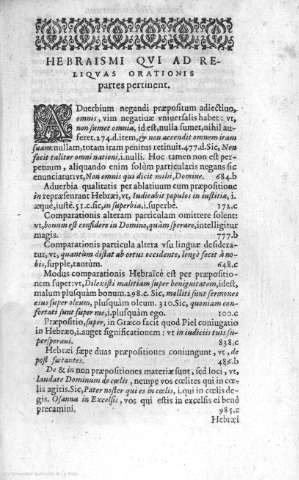 HEBRAISMI QVI AD RE-
LIQVAS ORATIONIS
partes pertinent.
ADuerbium negandi præpositum adiectiuo,
omnis, vim negatiuæ vniuersalis habet: vt,
non sumet omnia, id est, nulla sumet, nihil au-
feret. 174.d. item, & non accendit omnem iram
suam: nullam, totam iram penitus retinuit. 477.d. Sic, Non
facit taliter omni nationi, i. nulli. Hoc tamen non est per-
petuum, aliquando enim solùm particularis negans sic
enunciatur: vt, Non omnis qui dicit mihi, Domine. 684.b
Aduerbia qualitatis per ablatiuum cum præpositione
in repræsentant Hebræi, vt, Iudicabit populos in iustitia, i.
æquè, iustè. 51.c. sic, in superbia, i. superbè. 172.c
Comparationis alteram particulam omittere solent:
vt, bonum est confidere in Domino, quàm sperare, intelligitur
magis. 777.b
Comparationis particula altera vsu linguæ desidera-
tur, vt, quantùm distat ab ortus occidente, longè fecit à no-
bis, supple, tantùm. 648.c
Modus comparationis Hebraicè est per præpositio-
nem super: vt, Dilexisti malitiam super benignitatem, id est,
malum plusquàm bonum. 298.c. Sic, molliti sunt sermones
eius super oleum, plusquàm oleum. 310. Sic, quoniam con-
fortati sunt super me, i. plusquàm ego. 100.c
Præpositio, super, in Græco facit quod Piel coniugatio
in Hebræo, i. auget significationem: vt in iudiciis tuis su-
persperaui. 838.c
Hebræi sæpe duas præpositiones coniungunt, vt, de
post fœtantes. 486.b
De & in non præpositiones materiæ sunt, sed loci, vt,
laudate Dominum de cœlis, nempe vos cœlites qui in cœ-
lis agitis. Sic, Pater noster qui es in cœlis, i. qui in cœlis de-
gis. Osanna in Excelsis, vos qui estis in excelsis ei bene
precamini. 985.c
Hebræi